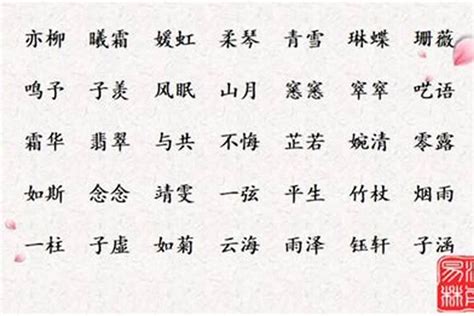 亦柳 曦霜 媛虹 柔琴 青雪 琳蝶 珊薇
鸣予 子羡 风眠 山月 窸窸 窣窣 呓语
霜华 翡翠 与共 不悔 芷若 婉清 零露
如斯 念念 靖雯 一弦 平生 竹杖 烟雨
一柱 子虚 如菊 云海 雨泽 钰轩 子涵